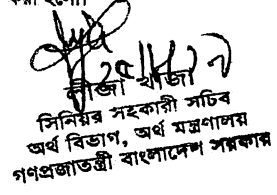 করা হলো।
সিনিয়র সহকারী সচিব
অর্থ বিভাগ, অর্থ মন্ত্রণালয়
গণপ্রজাতন্ত্রী বাংলাদেশ সরকার